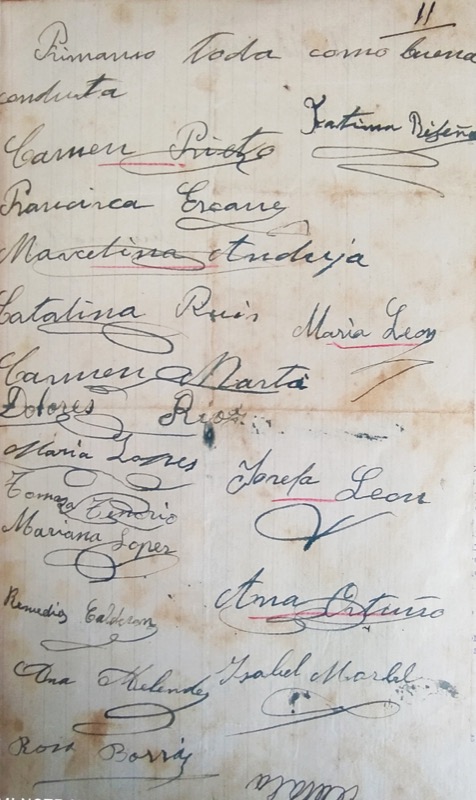 11
toda como buena
conducta
Fatima Rifeña
Carmen Prieto
Francisca
Marcelina Anduja
Catalina Ruis
Maria Leon
Carmen Marta
Dolores Rios
Maria Lopes
Josefa Leon
Tomasa Tenorio
Mariana Lopez
Ana Ortuño
Remedios Calderon
Ana Melendes
Isabel
Rosa Borrás